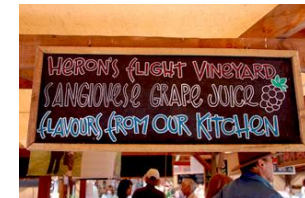 HERON'S FLIGHT VINEYARD
SANGIOVESE GRAPE JUICE
FLAVOURS FROM OUR KITCHEN